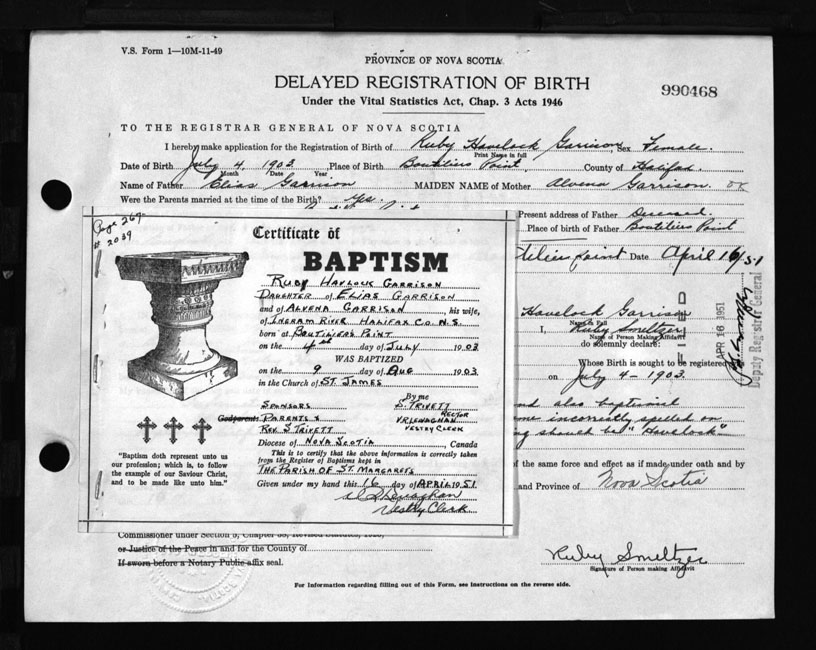 V.S. Form 1—10M-11-49
PROVINCE OF NOVA SCOTIA
DELAYED REGISTRATION OF BIRTH
Under the Vital Statistics Act, Chap. 3 Acts 1946
990468
TO THE REGISTRAR GENERAL OF NOVA SCOTIA
I hereby make application for the Registration of Birth of Ruby Havelock Garrison Sex Female.
Print Name in full
Date of Birth July 4, 1903, Place of Birth Boutiliers Point, County of Halifax.
Month Date Year
Name of Father Elias Garrison MAIDEN NAME of Mother Alvena Garrison. OK
Were the Parents married at the time of the Birth? Yes.
Present address of Father Deceased.
Place of birth of Father Boutiliers Point
Point Date April 16/51
Havelock Garrison
Name in Full
I, Ruby Smeltzer
Name of Person Making Affidavit
do solemnly declare:
Whose Birth is sought to be registered
on July 4 - 1903.
and also baptismal
incorrectly spelled on
should be "Havelock"
of the same force and effect as if made under oath and by
and Province of Nova Scotia
FILED
APR 16 1951
Deputy Registrar General
Page 267
# 2039
Certificate of
BAPTISM
RUBY HAVLOCK GARRISON
DAUGHTER OF ELIAS GARRISON
and of ALVENA GARRISON, his wife,
of INGRAM RIVER HALIFAX CO. N.S.
born at BOUTILIERS POINT
on the 4th day of JULY 1903
WAS BAPTIZED
on the 9 day of AUG 1903
in the Church of ST. JAMES
By me
SPONSORS S. TRIVETT
RECTOR
Godparents PARENTS & V.R LENAGHAN
REV S TRIVETT VESTRY CLERK
Diocese of NOVA SCOTIA, Canada
This is to certify that the above information is correctly taken
from the Register of Baptisms kept in
THE PARISH OF ST. MARGARETS
Given under my hand this 16 day of APRIL 1951
Vestry Clerk
"Baptism doth represent unto us
our profession; which is, to follow
the example of our Saviour Christ,
and to be made like unto him."
Commissioner under Section 5, Chapter 38, Revised Statutes, 1923,
or Justice of the Peace in and for the County of
If sworn before a Notary Public affix seal.
Ruby Smeltzer
Signature of Person making Affidavit
For Information regarding filling out of this Form, see instructions on the reverse side.